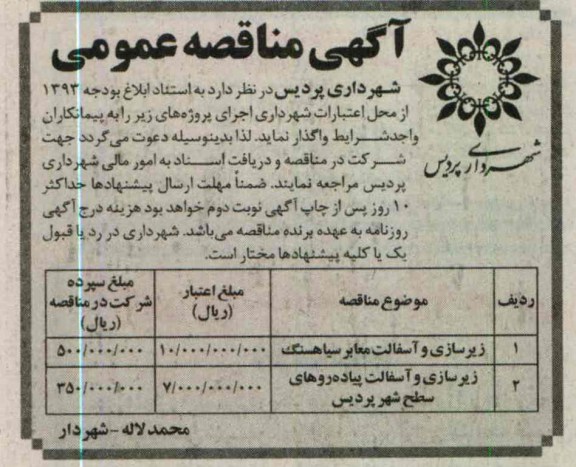 آگهی مناقصه عمومی
شهرداری پردیس
شهرداری پردیس در نظر دارد به استناد ابلاغ بودجه ۱۳۹۳
از محل اعتبارات شهرداری اجرای پروژه‌های زیر را به پیمانکاران
واجد شرایط واگذار نماید. لذا بدینوسیله دعوت می‌گردد جهت
شرکت در مناقصه و دریافت اسناد به امور مالی شهرداری
پردیس مراجعه نمایند. ضمناً مهلت ارسال پیشنهادها حداکثر
۱۰ روز پس از چاپ آگهی نوبت دوم خواهد بود هزینه درج آگهی
روزنامه به عهده برنده مناقصه می‌باشد. شهرداری در رد یا قبول
یک یا کلیه پیشنهادها مختار است.
ردیف موضوع مناقصه مبلغ اعتبار (ریال) مبلغ سپرده شرکت در مناقصه (ریال)
۱ زیرسازی و آسفالت معابر سیاهسنگ ۱۰/۰۰۰/۰۰۰/۰۰۰ ۵۰۰/۰۰۰/۰۰۰
۲ زیرسازی و آسفالت پیاده‌روهای سطح شهر پردیس ۷/۰۰۰/۰۰۰/۰۰۰ ۳۵۰/۰۰۰/۰۰۰
محمد لاله - شهردار